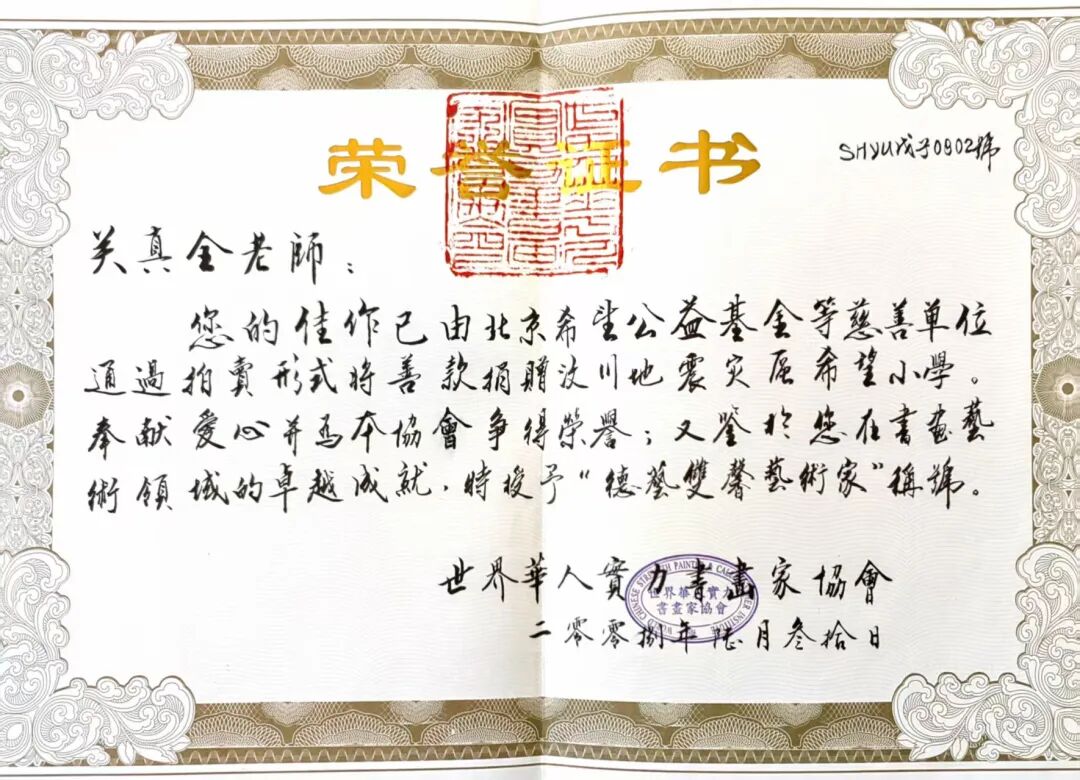 荣誉证书
SHYU戊子0902號
关真全老師：
您的佳作已由北京希望公益基金等慈善单位
通過拍賣形式将善款捐贈汶川地震灾區希望小學。
奉献愛心并为本協會争得榮譽；又鉴於您在書画藝
術領域的卓越成就，特授予“德藝雙馨藝術家”稱號。
世界華人實力書畫家協會
二零零捌年陆月叁拾日
世界華人實力
書畫家協會